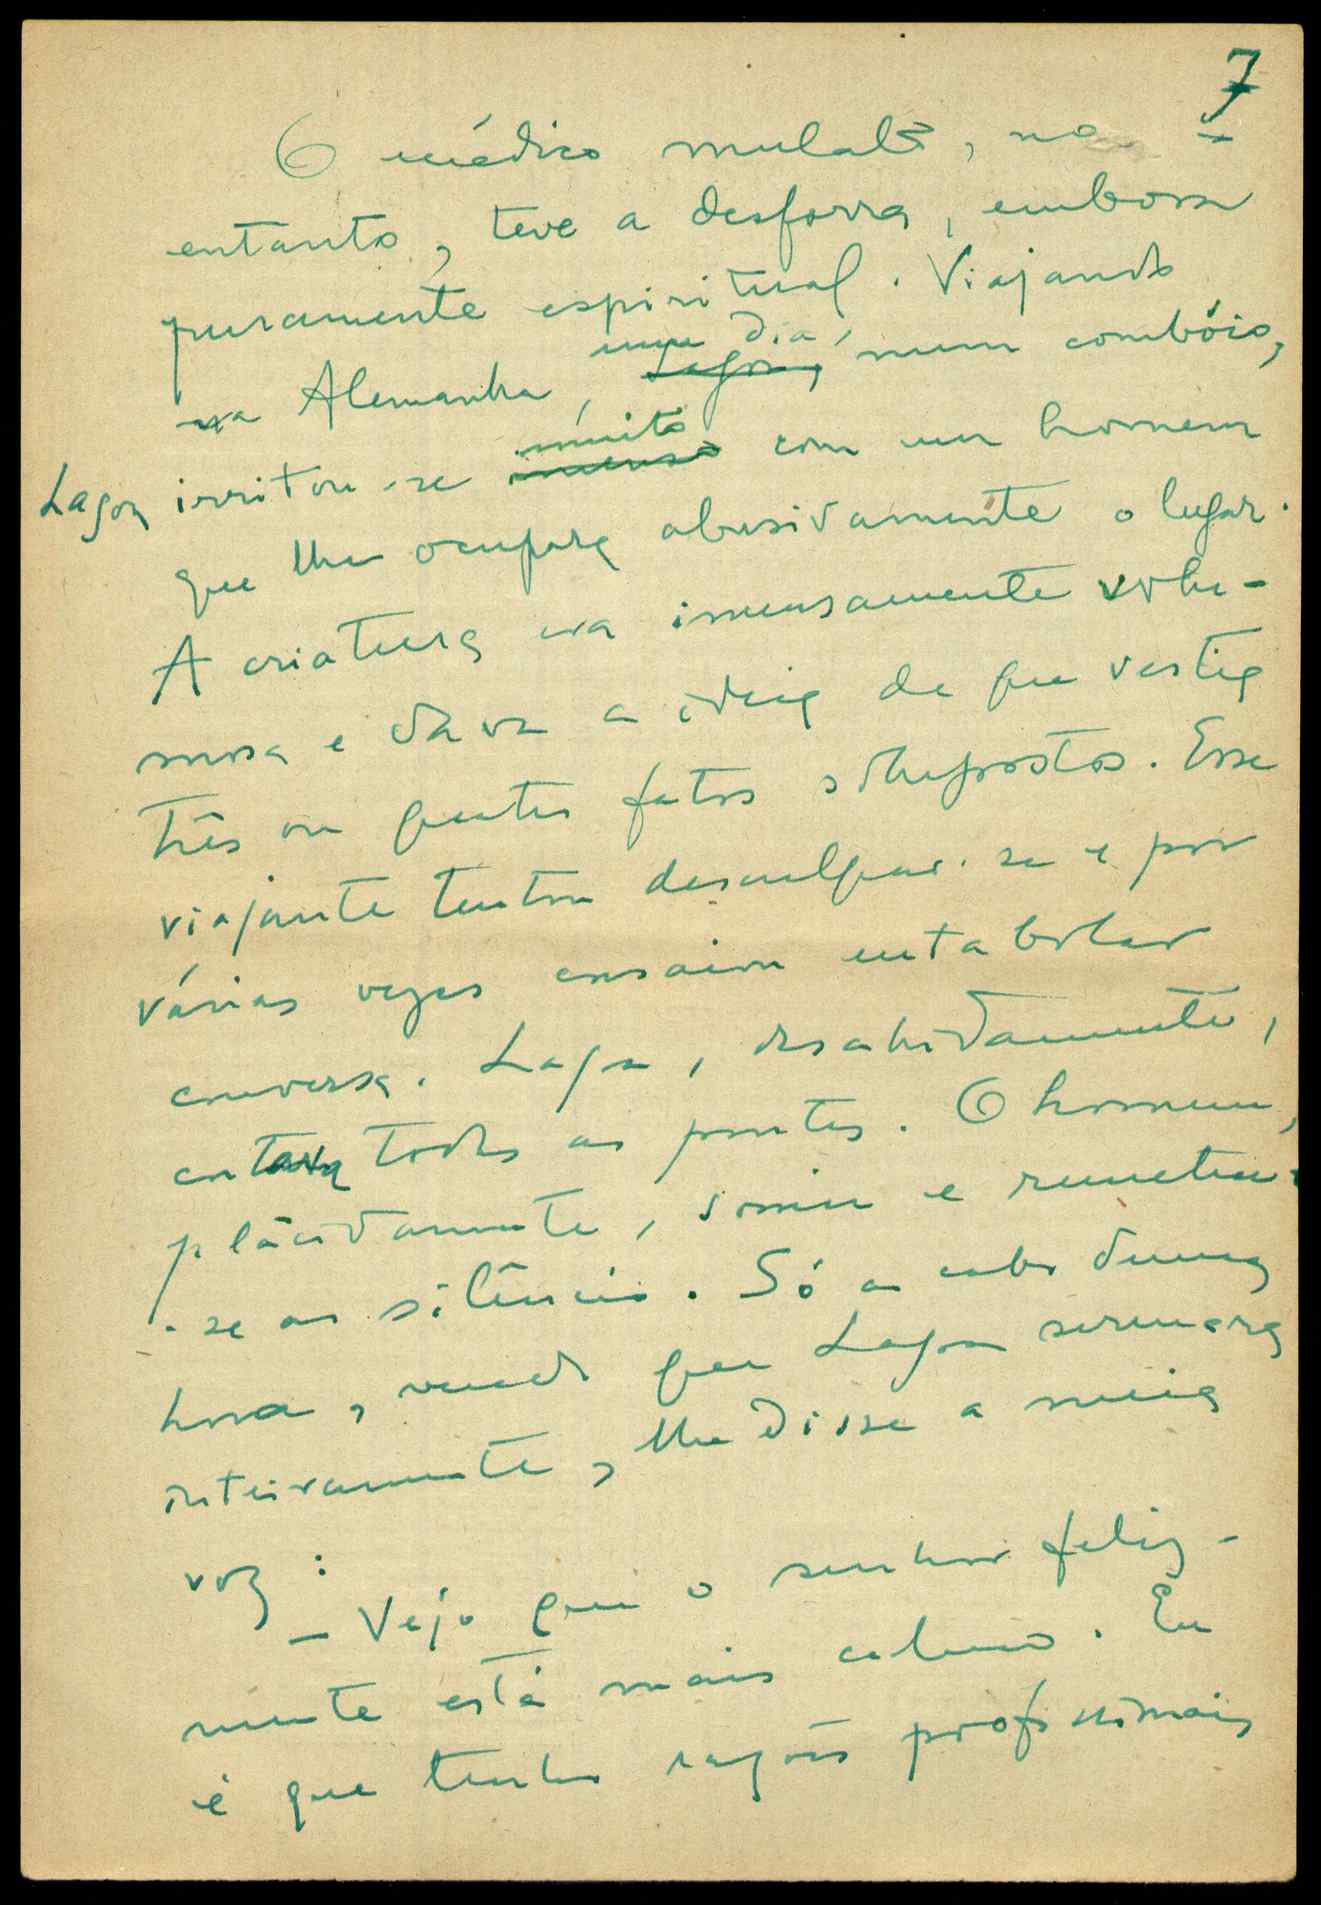 7
O médico mulato, no
entanto, teve a desforra, embora
puramente espiritual. Viajando
um dia,
na Alemanha, Lagoa, num combóio,
muito
Lagoa irritou-se imenso com um homem
que lhe ocupara abusivamente o lugar.
A criatura era imensamente volu-
mosa e dava a ideia de que vestia
três ou quatro fatos sobrepostos. Esse
viajante tentou desculpar-se e por
várias vezes ensaiou entabolar
conversa. Lagoa, desabridamente,
cortava todas as pontes. O homem,
plácidamente, sorriu e remeteu-
-se ao silêncio. Só ao cabo duma
hora, vendo que Lagoa serenara
inteiramente, lhe disse a meia
voz:
— Vejo que o senhor feliz-
mente está mais calmo. Eu
é que tenho razões profissionais